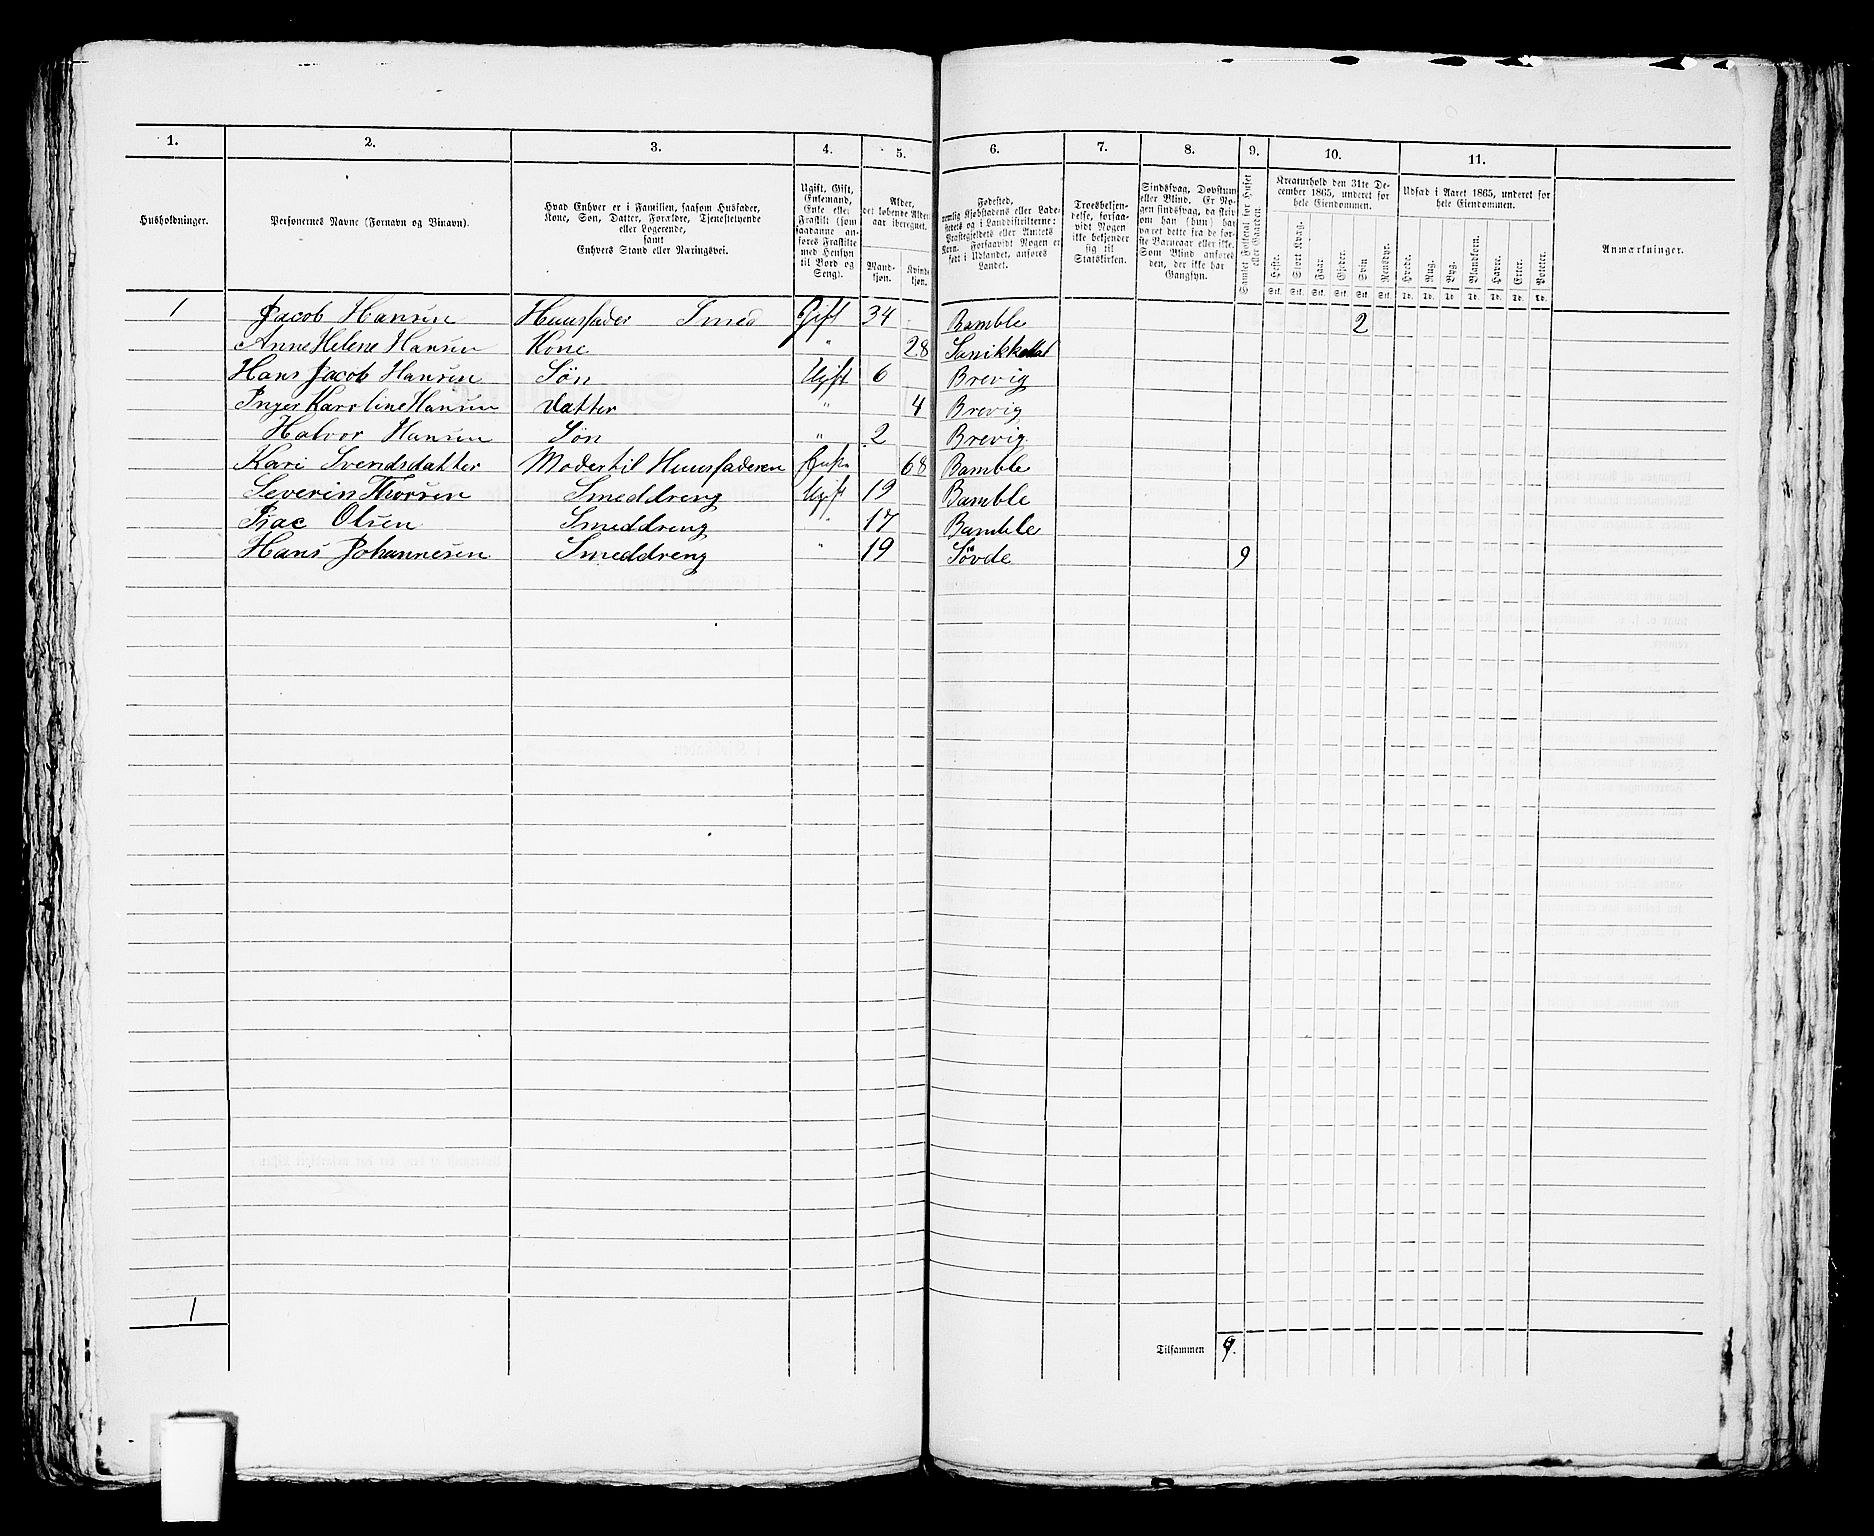 1. 2. 3. 4. 5. 6. 7. 8. 9. 10. 11.
Husholdninger.
Personernes Navne (Fornavn og Binavn).
Hvad Enhver er i Familien, saasom Husfader, Kone, Søn, Datter, Forældre, Tjenestetyende eller Logerende, samt Enhvers Stand eller Næringsvei.
Ugift, Gift, Enkemand, Enke eller Fraskilt (som saadanne anføres Fraskilte med Hensyn til Bord og Seng).
Alder, det løbende Alders aar iberegnet.
Mandkjøn. Kvindekjøn.
Fødested,
nemlig Kjøbstadens eller Ladestedets og i Landdistrikterne: Præstegjeldets eller Amtets Navn. Forsaavidt Nogen er født i Udlandet, anføres Landet.
Troesbekjendelse, forsaavidt Nogen ikke bekjender sig til Statskirken.
Sindssvag, Døvstum eller Blind. Er Nogen sindssvag, da skriv om han (hun) har været dette fra de første Barneaar eller ikke. Som Blind anføres den, der ikke har Gangsyn.
Samlet Folketal for Huset eller Gaarden.
Kreaturhold den 31te December 1865, underet for hele Eiendommen.
Heste. Stort Kvæg. Faar. Gjeder. Svin Rensdyr.
Stk. Stk. Stk. Stk. Stk. Stk.
Udsæd i Aaret 1865, underet for hele Eiendommen.
Hvede. Rug. Byg. Blandkorn. Havre. Erter. Poteter.
Td. Td. Td. Td. Td. Td. Td.
Anmærkninger.
1 Jacob Hansen Huusfader Smed Gift 34 Bamble 2
Anne Helene Hansen Kone " 28 Sanikkedal
Hans Jacob Hansen Søn Ugift 6 Brevig
Inger Karoline Hansen Datter " 4 Brevig
Halvor Hansen Søn " 2 Brevig
Kari Svendsdatter Moder til Huusfaderen Enke 68 Bamble
Severin Thorsen Smeddreng Ugift 19 Bamble
Isac Olsen Smeddreng " 17 Bamble
Hans Johannesen Smeddreng " 19 Søvde 9
1
Tilsammen 9.